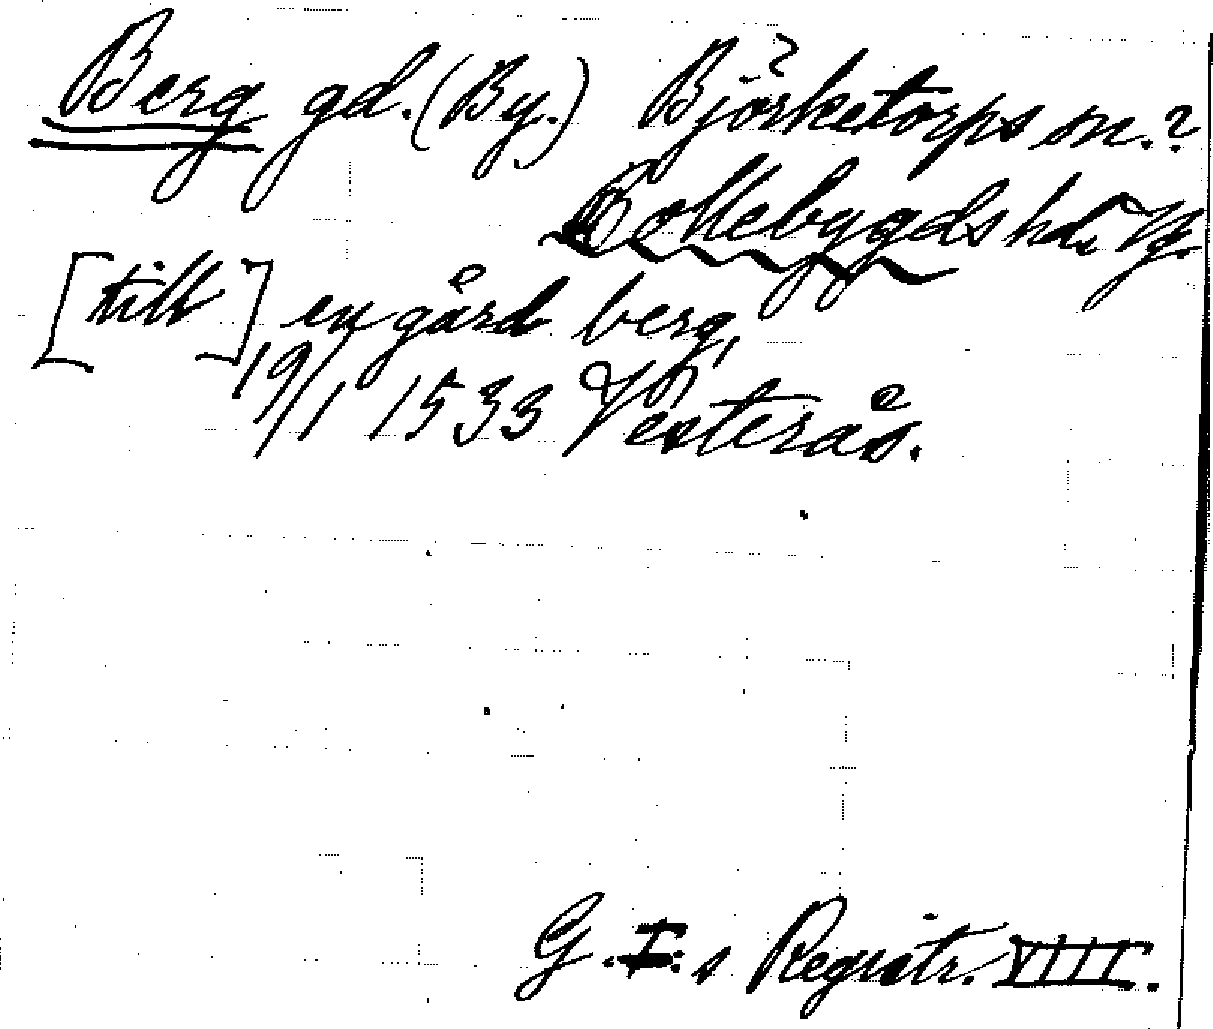 Berg gd. (By.) Björketorps sn.?
Bollebygds hd. Vg.
[till] en gård berg,
19/1 1533 Vesterås.
G. I:s Registr. VIII.